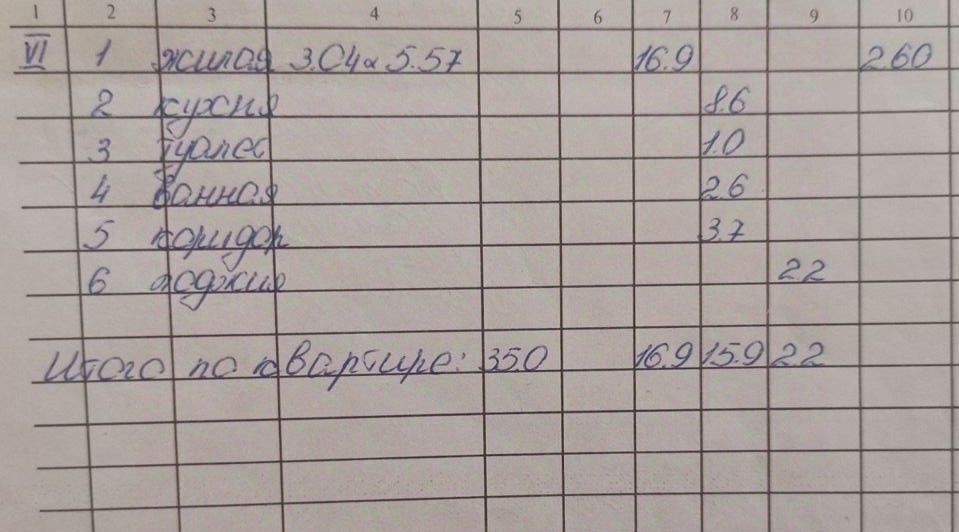 1 2 3 4 5 6 7 8 9 10
VI 1 жилая 3.04 x 5.57 16.9 2.60
2 кухня 8.6
3 туалет 1.0
4 ванная 2.6
5 коридор 3.7
6 лоджия 2.2
Итого по квартире: 35.0 16.9 15.9 2.2